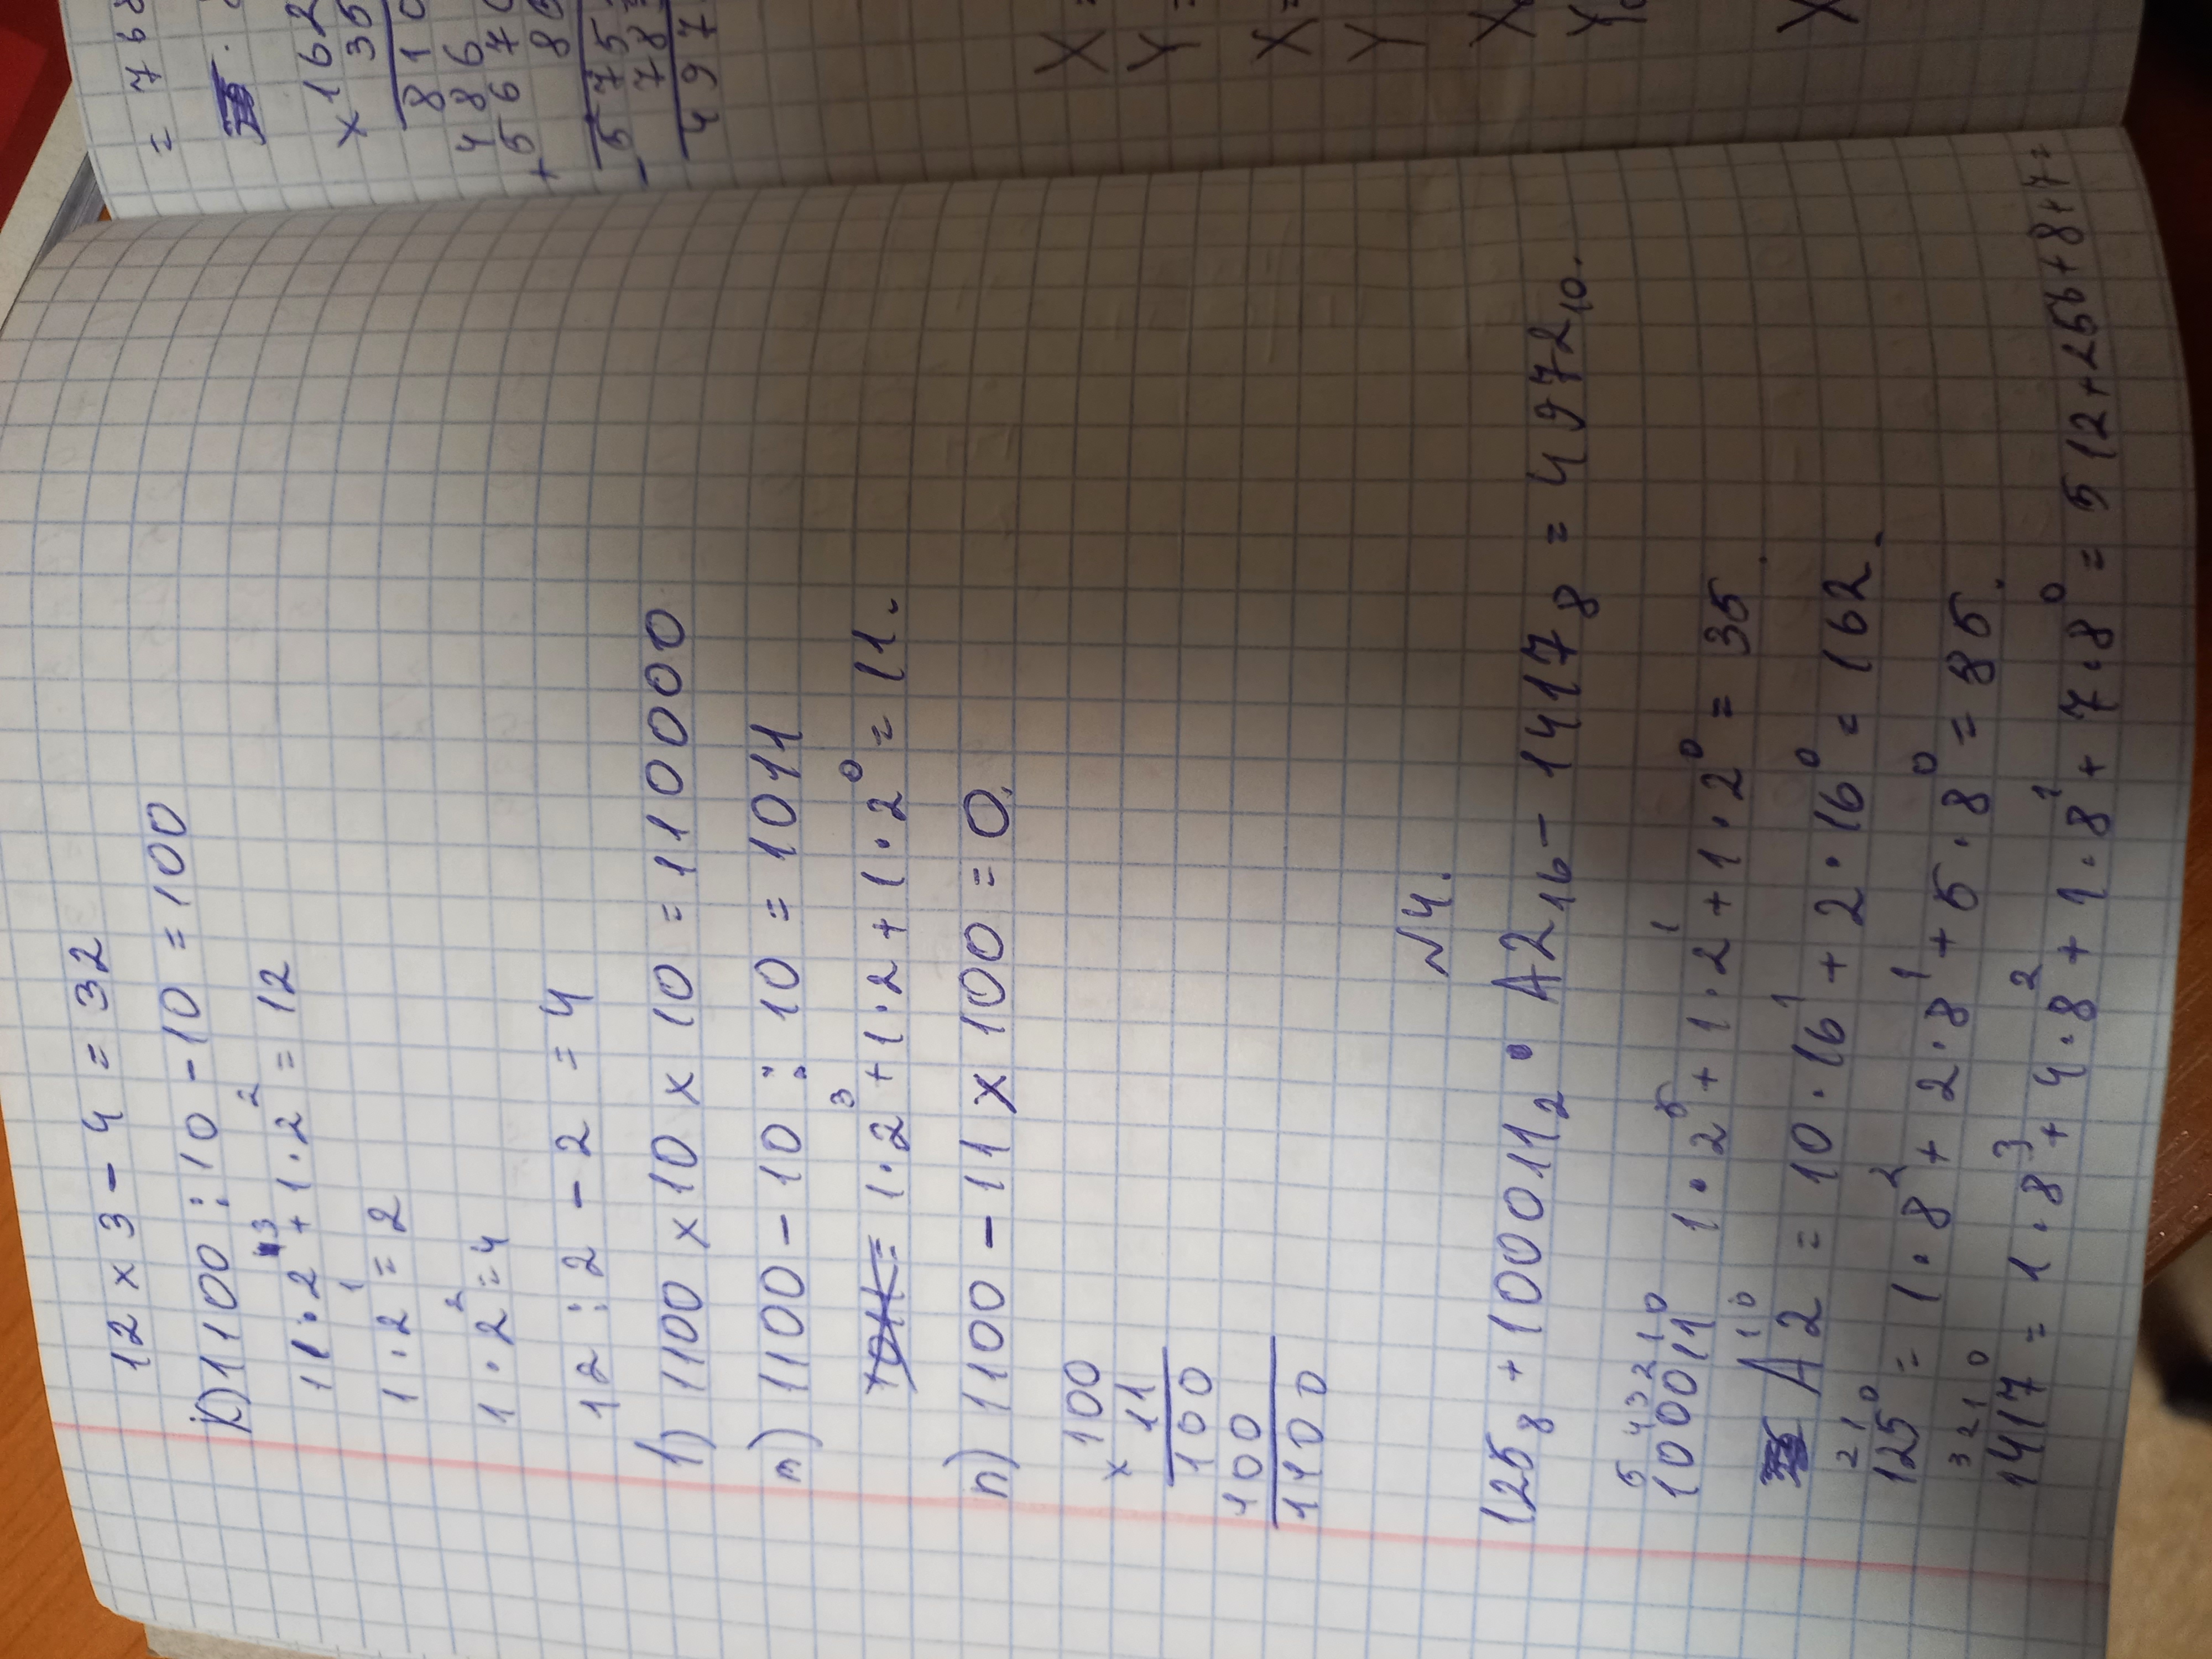 12 × 3 - 4 = 32
k) 1100 : 10 - 10 = 100
11 · 2³ + 1 · 2² = 12
1 · 2¹ = 2
1 · 2² = 4
12 : 2 - 2 = 4
l) 1100 × 10 × 10 = 110000
m) 1100 - 10 : 10 = 1011
1 · 2³ + 1 · 2 + 1 · 2⁰ = 11.
n) 1100 - 11 × 100 = 0.
100
× 11
100
100
1100
№4.
125₈ + 100011₂ · A2₁₆ - 1417₈ = 4972₁₀.
5 4 3 2 1 0
100011 1 · 2⁵ + 1 · 2¹ + 1 · 2⁰ = 35.
1 0
A2 = 10 · 16¹ + 2 · 16⁰ = 162.
2 1 0
125 = 1 · 8² + 2 · 8¹ + 5 · 8⁰ = 85.
3 2 1 0
1417 = 1 · 8³ + 4 · 8² + 1 · 8¹ + 7 · 8⁰ = 512 + 256 + 8 + 7 =
= 768
× 162
35
810
486
5670
+
575
-
497
X =
Y =
X =
Y
X
Y
X